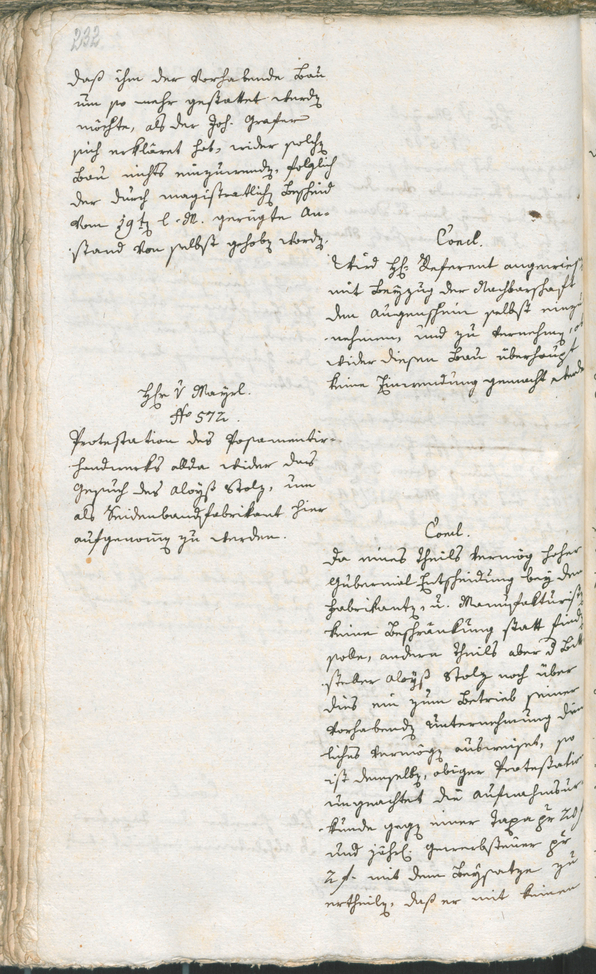 232
daß ihm der vorhabende Bau
um so mehr gestattet werdn
möchte, als der Joh. Grafer
sich erkläret hat, wider solchn
Bau nichts einzuwendn, folglich
der durch magistratlichn Bescheid
vom 19tn l. M. gerügte An-
stand von selbst gehobn werdn.
Concl.
Wird Hl. Referent angewies
mit Beyzug der Nachbarschaft
den Augenschein selbst einzu
nehmen, und zu vernehmen, ob
wider diesen Bau überhaupt
keine Einwendung gemacht werde
Hr v Mayrl.
No 572.
Protestation des Posamentir-
handwerks allda wider das
Gesuch des Aloyß Stolz, um
als Seidenbandfabrikant hier
aufgenomn zu werden.
Concl.
Da eines Theils vermög hoher
Gubernial Entscheidung bey den
Fabrikantn, u. Manufakturist
keine Beschränkung statt findn
solle, andern Theils aber d Bitt
steller Aloyß Stolz noch über
dies ein zum Betrieb seiner
vorhabendn Unternehmung dien
liches Vermögn ausweiset, so
ist demselbn, obiger Protestation
ungeachtet die Aufnahmsur
kunde gegn einer Taxa pr 20
und jährl. Gewerbsteuer pr
2 f. mit dem Beysatze zu
ertheiln, daß er mit keinen